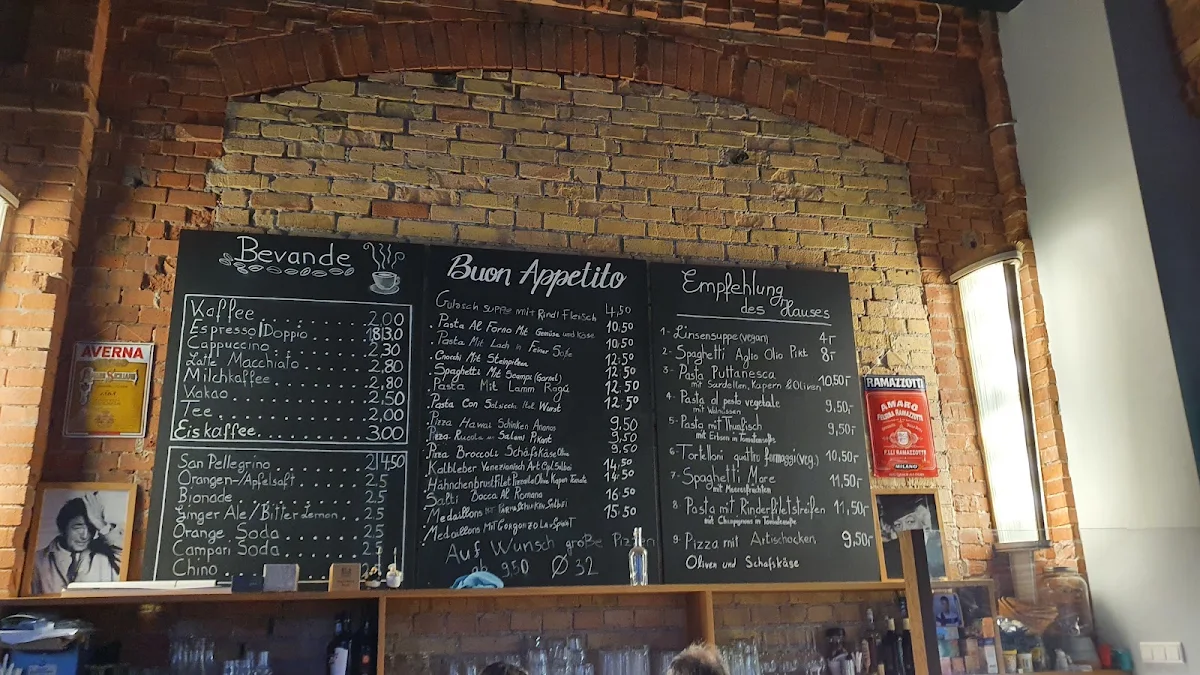 Bevande
Kaffee 2.00
Espresso/Doppio 1.8/3.0
Cappuccino 2,30
Latte Macchiato 2,80
Milchkaffee 2,80
Kakao 2,50
Tee 2,00
Eiskaffee 3,00
San Pellegrino 2/4.50
Orangen-/Apfelsaft 2.5
Bionade 2.5
Ginger Ale/Bitter Lemon 2.5
Orange Soda 2.5
Campari Soda 2.5
Chino
Buon Appetito
Gulasch suppe mit Rind Fleisch 4,50
Pasta Al Forno Mit Gemüse und Käse 10.50
Pasta Mit Lach in Feiner Soße 10.50
Gnocchi Mit Steinpilzen 12.50
Spaghetti Mit Scampi (Garnel) 12.50
Pasta Mit Lamm Rogú 12.50
Pasta Con Salsicia Ital Wurst 12.50
Pizza Hawai Schinken Ananas 9.50
Pizza Rucola Salami Pikant 9.50
Pizza Broccoli Schafskäse 9.50
Kalbleber Venezianisch Art 14.50
Hähnchenbrust Filet 14.50
Salti Bocca Al Romana 16.50
Medaillons 15.50
Medaillons Mit Gorgonzola
Auf Wunsch große Pizzen
ab 9.50 Ø 32
Empfehlung
des Hauses
1- Linsensuppe (vegan) 4,-
2- Spaghetti Aglio Olio Pikt 8,-
3- Pasta Puttanesca
mit Sardellen, Kapern & Oliven 10,50,-
4- Pasta al pesto vegetale
mit Walnüssen 9,50,-
5- Pasta mit Thunfisch
mit Erbsen in Tomatensoße 9,50,-
6- Tortelloni quattro formaggi (veg.) 10,50,-
7- Spaghetti Mare
mit Meeresfrüchten 11,50,-
8- Pasta mit Rinderfiletstreifen 11,50,-
mit Champignons in Tomatensoße
9- Pizza mit Artischocken, 9,50,-
Oliven und Schafskäse
AVERNA
RAMAZZOTTI
AMARO
FELSINA RAMAZZOTTI
F.LLI RAMAZZOTTI
MILANO